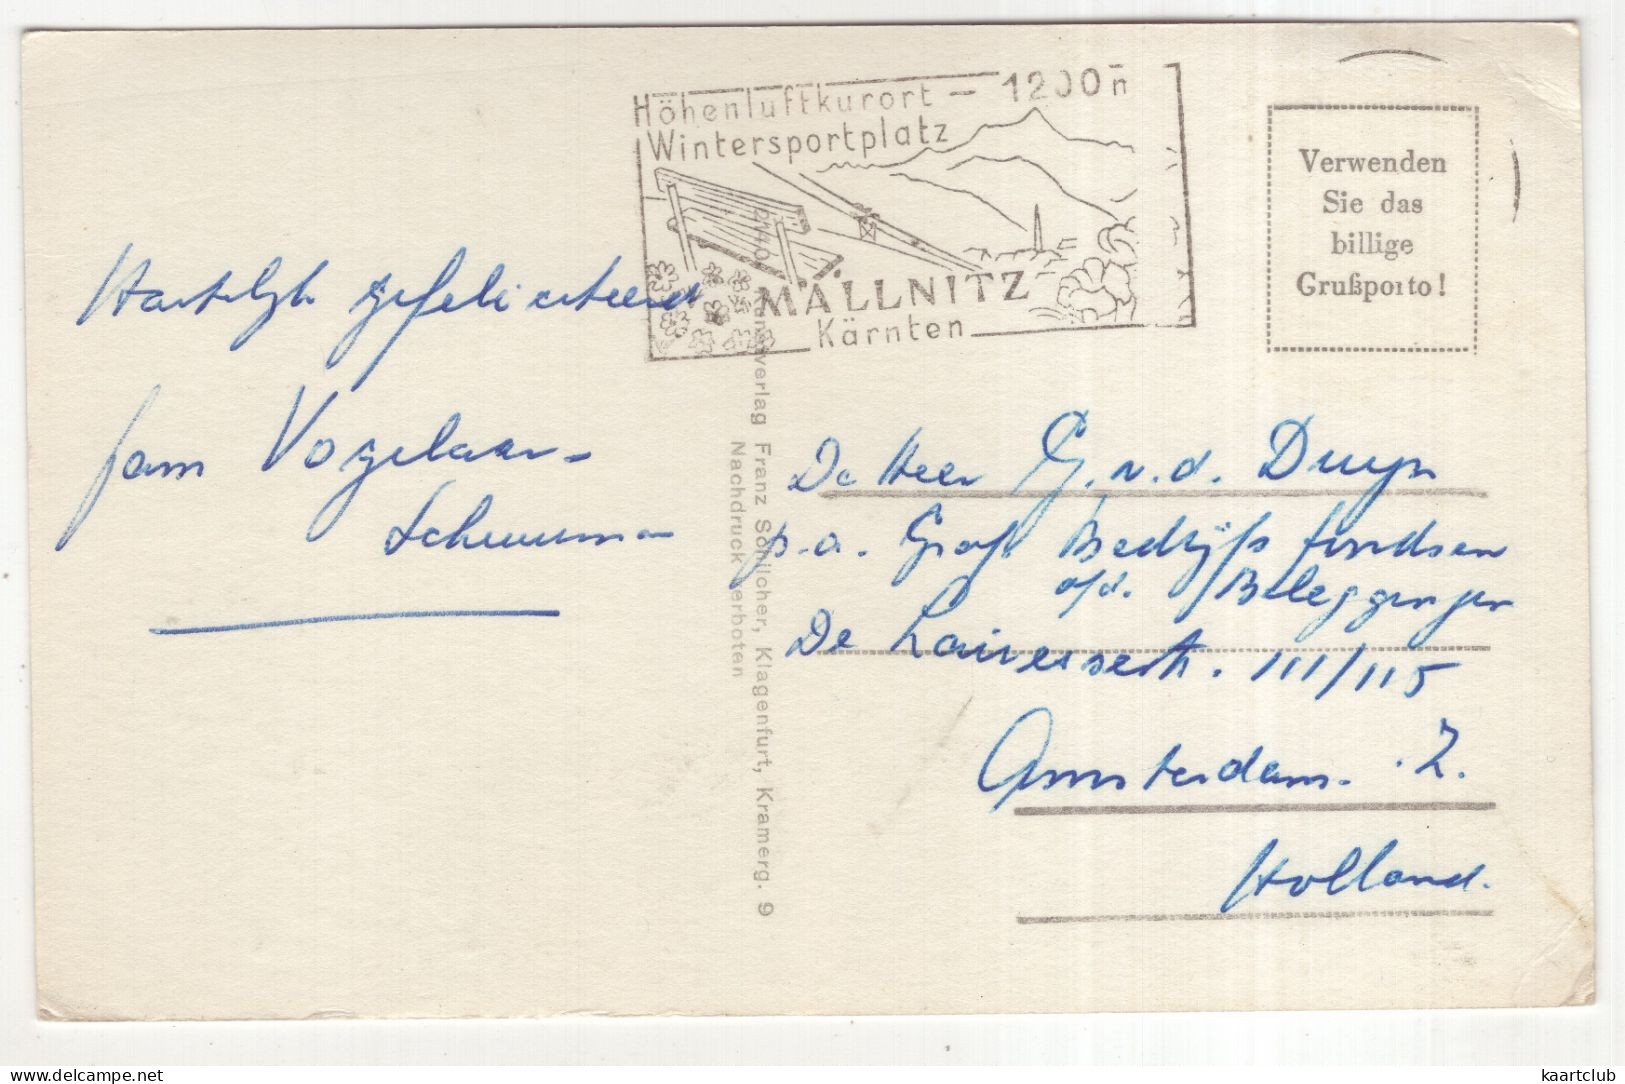 Höhenluftkurort – 1200 m
Wintersportplatz
MALLNITZ
Kärnten
Verwenden
Sie das
billige
Grußporto!
Hartelijk gefeliciteerd
fam Vogelaar-
Schuurman
Kunstverlag Franz Schilcher, Klagenfurt, Kramerg. 9
Nachdruck verboten
De Heer G. v. d. Duyn
p.a. Graf. Bedrijfs fondsen
afd. Beleggingen
De Lairessestr. 111/115
Amsterdam. Z.
Holland.
kaartclub